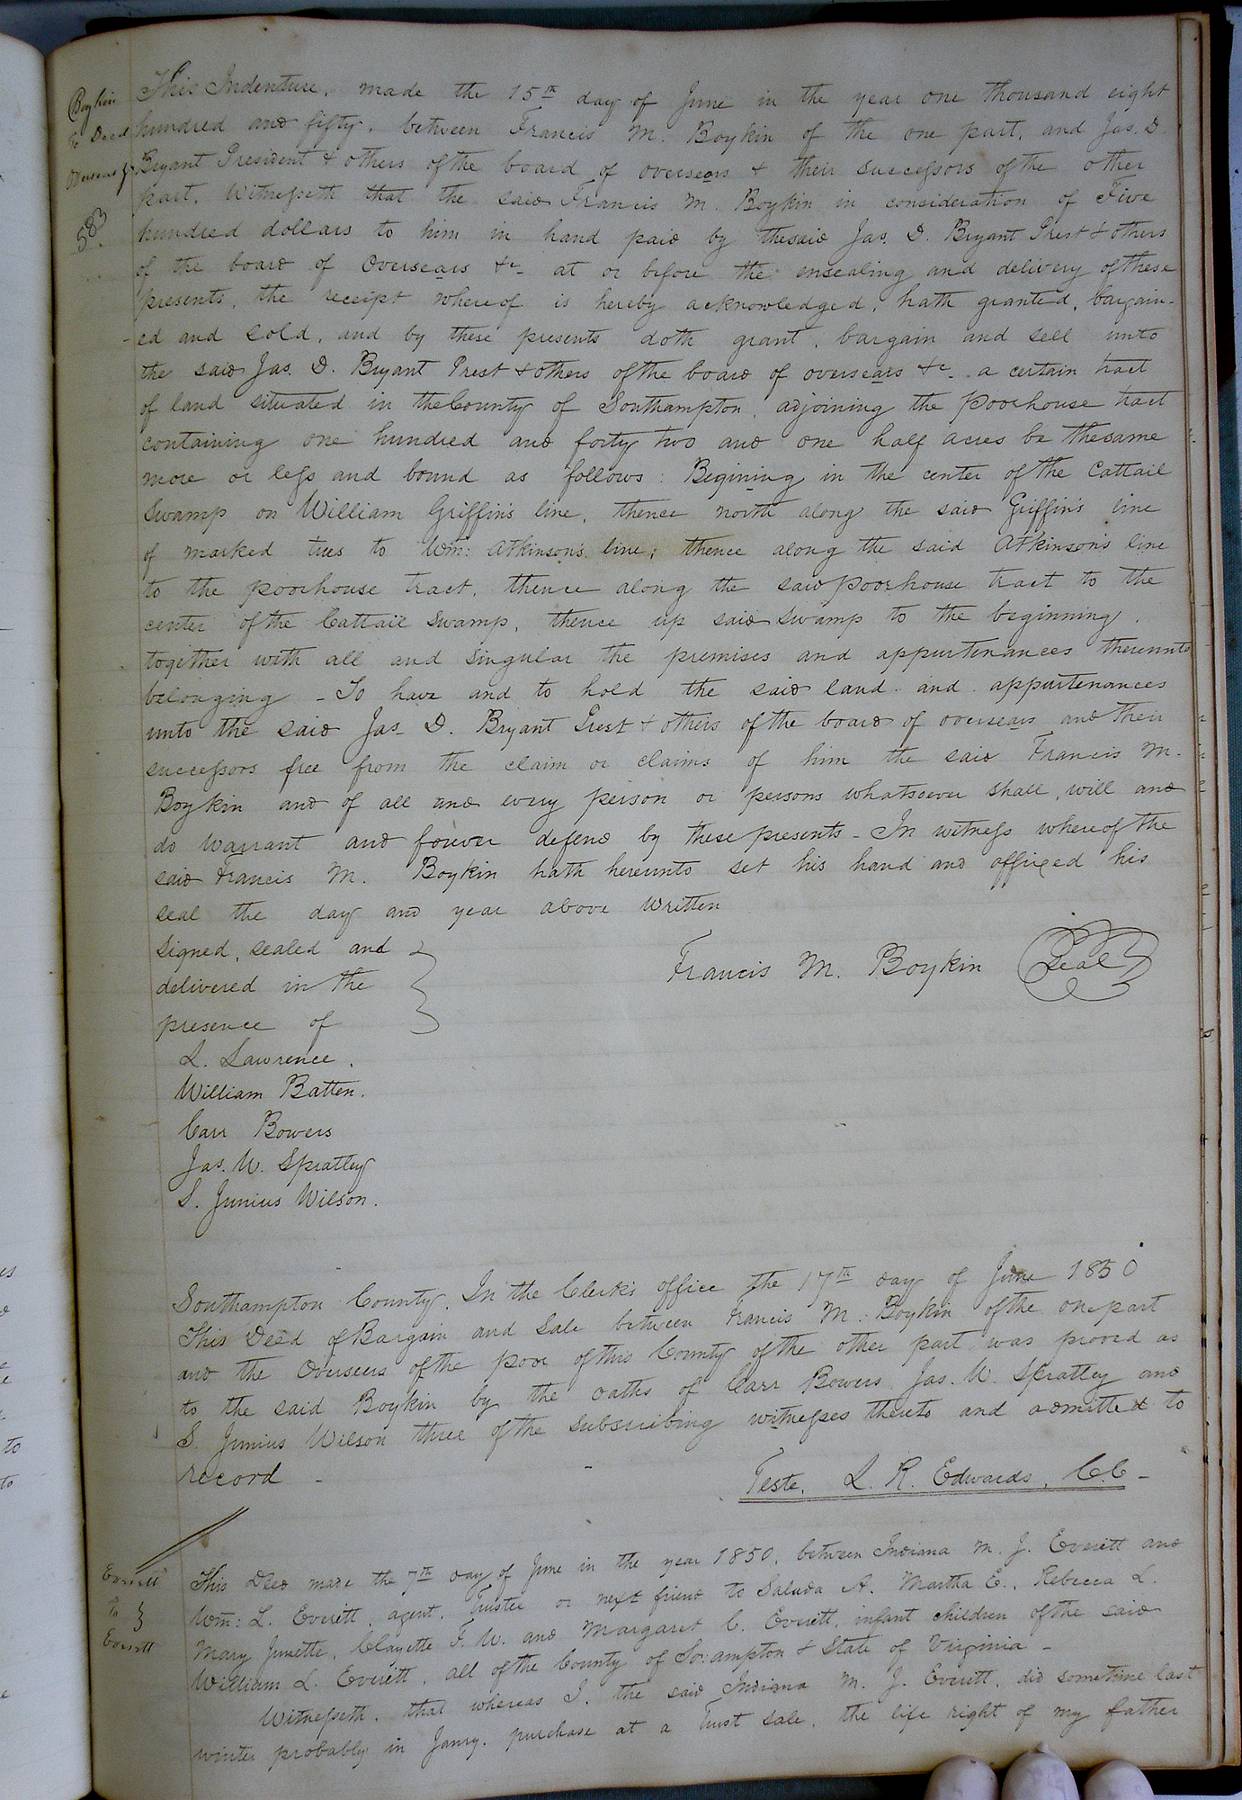 Boykin
to Deed
Overseers &c
583
This Indenture, made the 15th day of June in the year one thousand eight
hundred and fifty, between Francis M. Boykin of the one part, and Jas. D.
Bryant President & others of the board of oversears & their successors of the other
part, Witnesseth that the said Francis M. Boykin in consideration of Five
hundred dollars to him in hand paid by the said Jas. D. Bryant Prest & others
of the board of Oversears &c. at or before the ensealing and delivery of these
presents, the receipt whereof is hereby acknowledged, hath granted, bargain-
ed and sold, and by these presents doth grant, bargain and sell unto
the said Jas. D. Bryant Prest & others of the board of oversears &c. a certain tract
of land situated in the County of Southampton, adjoining the Poorhouse tract
containing one hundred and forty two and one half acres be the same
more or less and bound as follows: Begining in the center of the Cattail
Swamp on William Griffin's line, thence north along the said Griffin's line
of marked trees to Wm: Atkinson's line; thence along the said Atkinson's line
to the poorhouse tract, thence along the said poorhouse tract to the
center of the Cattail Swamp, thence up said swamp to the beginning,
together with all and singular the premises and appurtenances thereunto
belonging - To have and to hold the said land and appurtenances
unto the said Jas. D. Bryant Prest & others of the board of oversears and their
successors free from the claim or claims of him the said Francis M.
Boykin and of all and every person or persons whatsoever shall, will and
do warrant and forever defend by these presents - In witness whereof the
said Francis M. Boykin hath hereunto set his hand and affixed his
seal the day and year above written
Signed, sealed and
delivered in the
presence of
Francis M. Boykin Seal
L. Lawrence.
William Batten.
Carr Bowers
Jas. W. Spratley
S. Junius Wilson.
Southampton County, In the Clerk's office the 17th day of June 1850
This Deed of Bargain and Sale between Francis M. Boykin of the one part
and the Overseers of the poor of this County of the other part was proved as
to the said Boykin by the oaths of Carr Bowers, Jas. W. Spratley and
S. Junius Wilson three of the subscribing witnesses thereto and admitted to
record -
Teste, L. R. Edwards, C.C -
Everett
to
Everett
This Deed made the 7th day of June in the year 1850, between Indiana M. J. Everett and
Wm: L. Everett, agent, Trustee or next friend to Saluda A. Martha E., Rebecca L.
Mary Junette, Clayette F. W. and Margaret C. Everett, infant children of the said
William L. Everett, all of the County of So:ampton & State of Virginia -
Witnesseth, that whereas I, the said Indiana M. J. Everett, did sometime last
winter probably in Janry. purchase at a Trust sale, the life right of my father